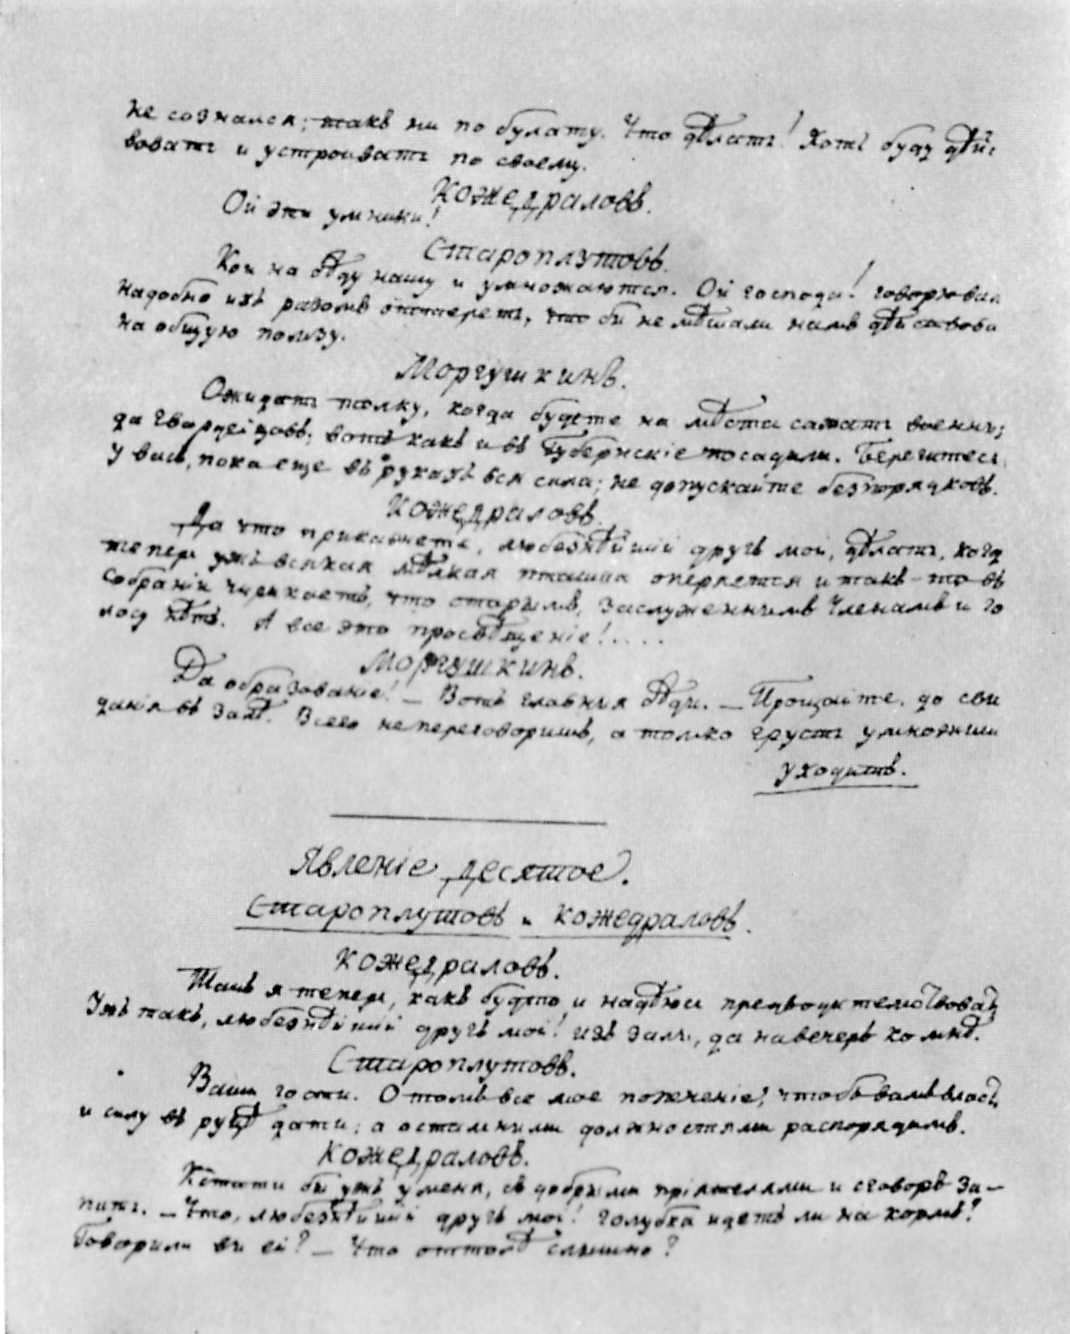 не сознался; такъ ни по булату. Что дѣлать! Хоть буду дѣйст
вовать и устроивать по своему.
Кожедраловъ.
Ой эти умники!
Староплутовъ.
Кои на бѣду нашу и умножаются. Ой господа! говорю вам
надобно ихъ разомъ оттереть, что бы не мѣшали намъ дѣйствова
на общую пользу.
Моргушкинъ.
Ожидать толку, когда будете на мѣста сажать военны;
да гвардейцовъ; вотъ какъ и въ Губернскіе посадили. Берегитесь.
У васъ, пока еще въ рукахъ вся сила; не допускайте безпорядковъ.
Кожедраловъ.
Да что прикажете, любезнѣйшій другъ мой, дѣлать, когда
теперь ужъ всякая мѣлкая пташка оперяется и такъ-то въ
собраніи чиркаетъ, что старымъ, заслуженнымъ Членамъ и го
лосу нѣтъ. А все это просвѣщеніе!....
Моргушкинъ.
Да образованіе! — Вотъ главныя бѣды. — Прощайте, до сви
данія въ залѣ. Всего не переговоришь, а только грусть умноживши
уходитъ.
Явленіе десятое.
Староплутовъ и Кожедраловъ.
Кожедраловъ.
Такъ я теперь, какъ будто и надѣюсь предводительствовать
Ужъ такъ, любезнѣйшій другъ мой! изъ залы, да на вечеръ ко мнѣ.
Староплутовъ.
Ваши гости. О томъ все мое попеченіе, чтобъ вамъ власть
и силу въ руцѣ дати; а остальными должностями распорядимъ.
Кожедраловъ.
Кстати бы ужъ у меня, съ добрыми пріятелями и сговоръ за-
пить. — Что, любезнѣйшій другъ мой! голубка идетъ ли на кормъ?
Говорили вы ей? — Что оттолѣ слышно?